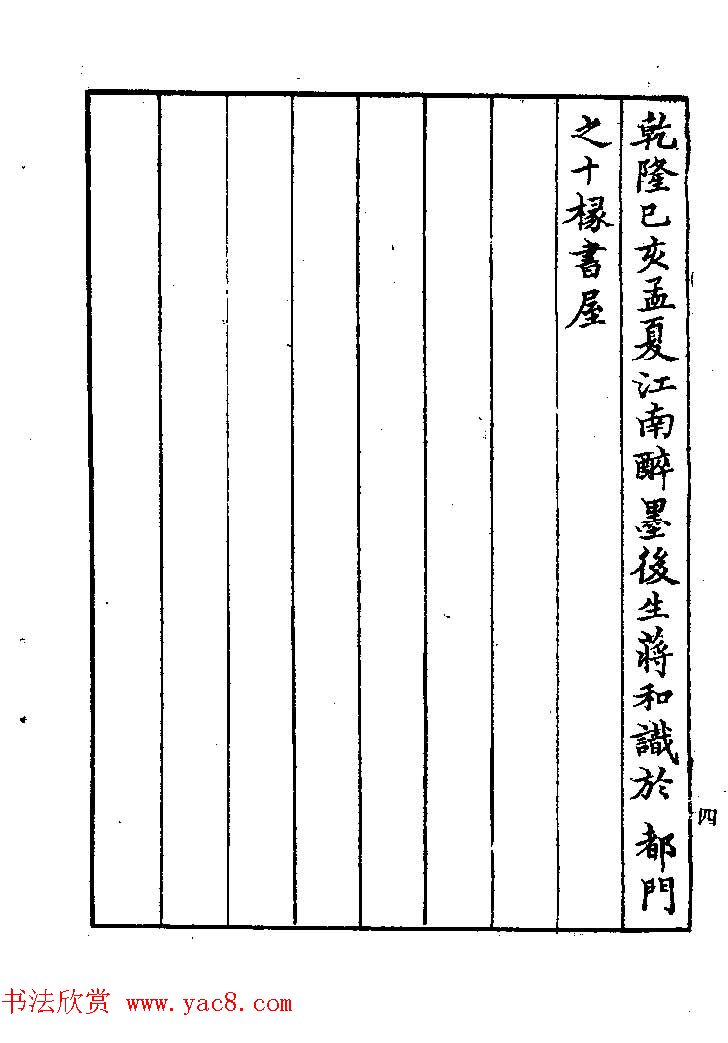 乾隆己亥孟夏江南醉墨後生蔣和識於 都門
之十椽書屋
四
书法欣赏 www.yac8.com